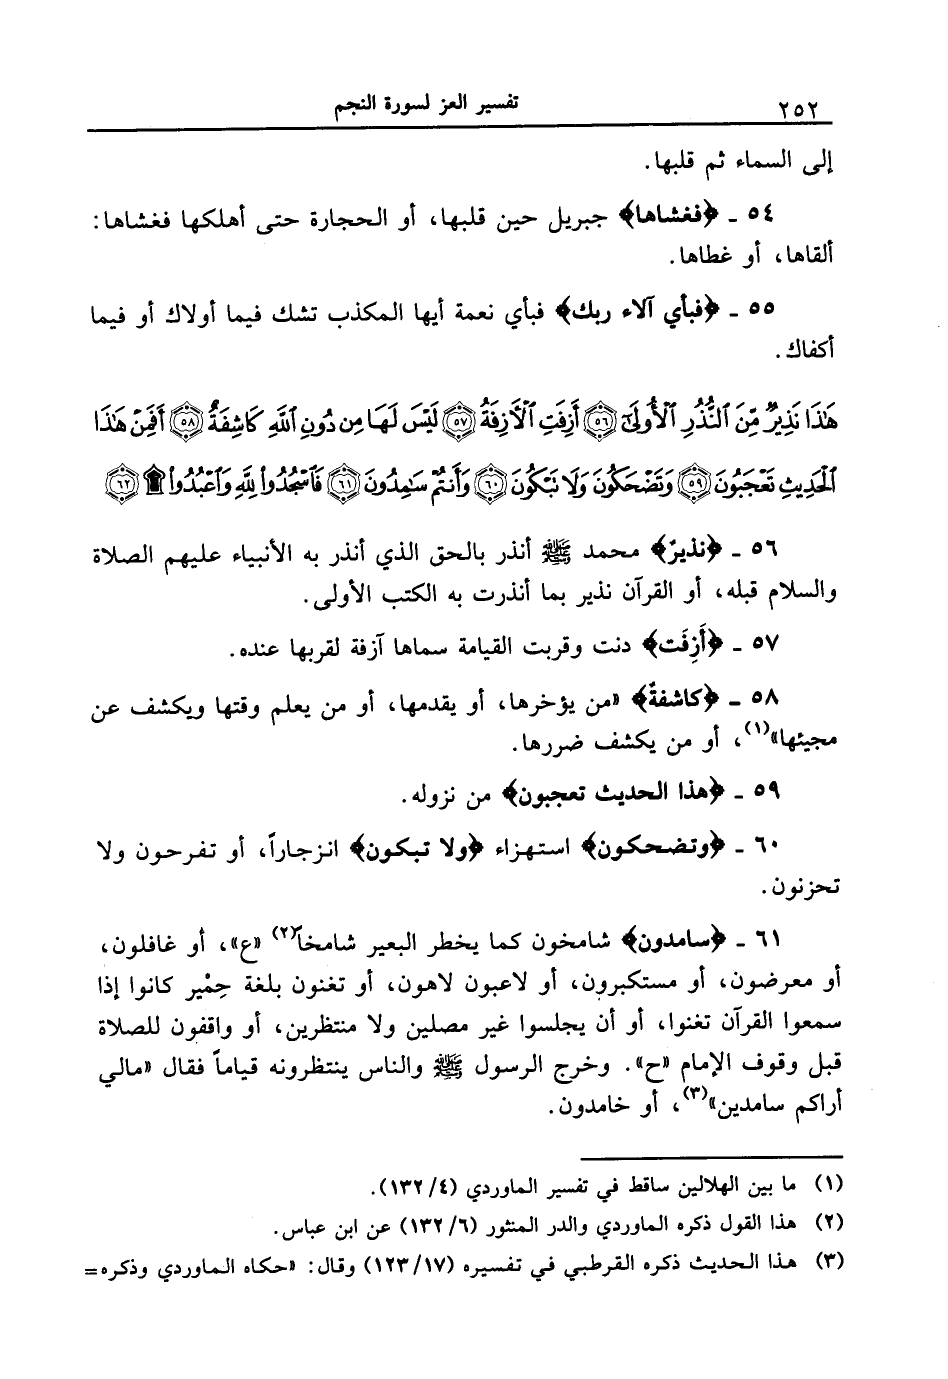 ٢٥٢ تفسير العز لسورة النجم
إلى السماء ثم قلبها.
٥٤ ـ ﴿فغشاها﴾ جبريل حين قلبها، أو الحجارة حتى أهلكها فغشاها:
ألقاها، أو غطاها.
٥٥ ـ ﴿فبأي آلاء ربك﴾ فبأي نعمة أيها المكذب تشك فيما أولاك أو فيما
أكفاك.
هَٰذَا نَذِيرٌ مِّنَ ٱلنُّذُرِ ٱلْأُولَىٰٓ ۝٥٦ أَزِفَتِ ٱلْءَازِفَةُ ۝٥٧ لَيْسَ لَهَا مِن دُونِ ٱللَّهِ كَاشِفَةٌ ۝٥٨ أَفَمِنْ هَٰذَا
ٱلْحَدِيثِ تَعْجَبُونَ ۝٥٩ وَتَضْحَكُونَ وَلَا تَبْكُونَ ۝٦٠ وَأَنتُمْ سَٰمِدُونَ ۝٦١ فَٱسْجُدُوا۟ لِلَّهِ وَٱعْبُدُوا۟ ۩ ۝٦٢
٥٦ ـ ﴿نذيرٌ﴾ محمد ﷺ أنذر بالحق الذي أنذر به الأنبياء عليهم الصلاة
والسلام قبله، أو القرآن نذير بما أنذرت به الكتب الأولى.
٥٧ ـ ﴿أَزِفَت﴾ دنت وقربت القيامة سماها آزفة لقربها عنده.
٥٨ ـ ﴿كاشفةٌ﴾ «من يؤخرها، أو يقدمها، أو من يعلم وقتها ويكشف عن
مجيئها»(١)، أو من يكشف ضررها.
٥٩ ـ ﴿هذا الحديث تعجبون﴾ من نزوله.
٦٠ ـ ﴿وتضحكون﴾ استهزاء ﴿ولا تبكون﴾ انزجاراً، أو تفرحون ولا
تحزنون.
٦١ ـ ﴿سامدون﴾ شامخون كما يخطر البعير شامخاً(٢) «ع»، أو غافلون،
أو معرضون، أو مستكبرون، أو لاعبون لاهون، أو تغنون بلغة حِمْير كانوا إذا
سمعوا القرآن تغنوا، أو أن يجلسوا غير مصلين ولا منتظرين، أو واقفون للصلاة
قبل وقوف الإمام «ح». وخرج الرسول ﷺ والناس ينتظرونه قياماً فقال «مالي
أراكم سامدين»(٣)، أو خامدون.
(١) ما بين الهلالين ساقط في تفسير الماوردي (٤/ ١٣٢).
(٢) هذا القول ذكره الماوردي والدر المنثور (٦/ ١٣٢) عن ابن عباس.
(٣) هذا الحديث ذكره القرطبي في تفسيره (١٧/ ١٢٣) وقال: «حكاه الماوردي وذكره=